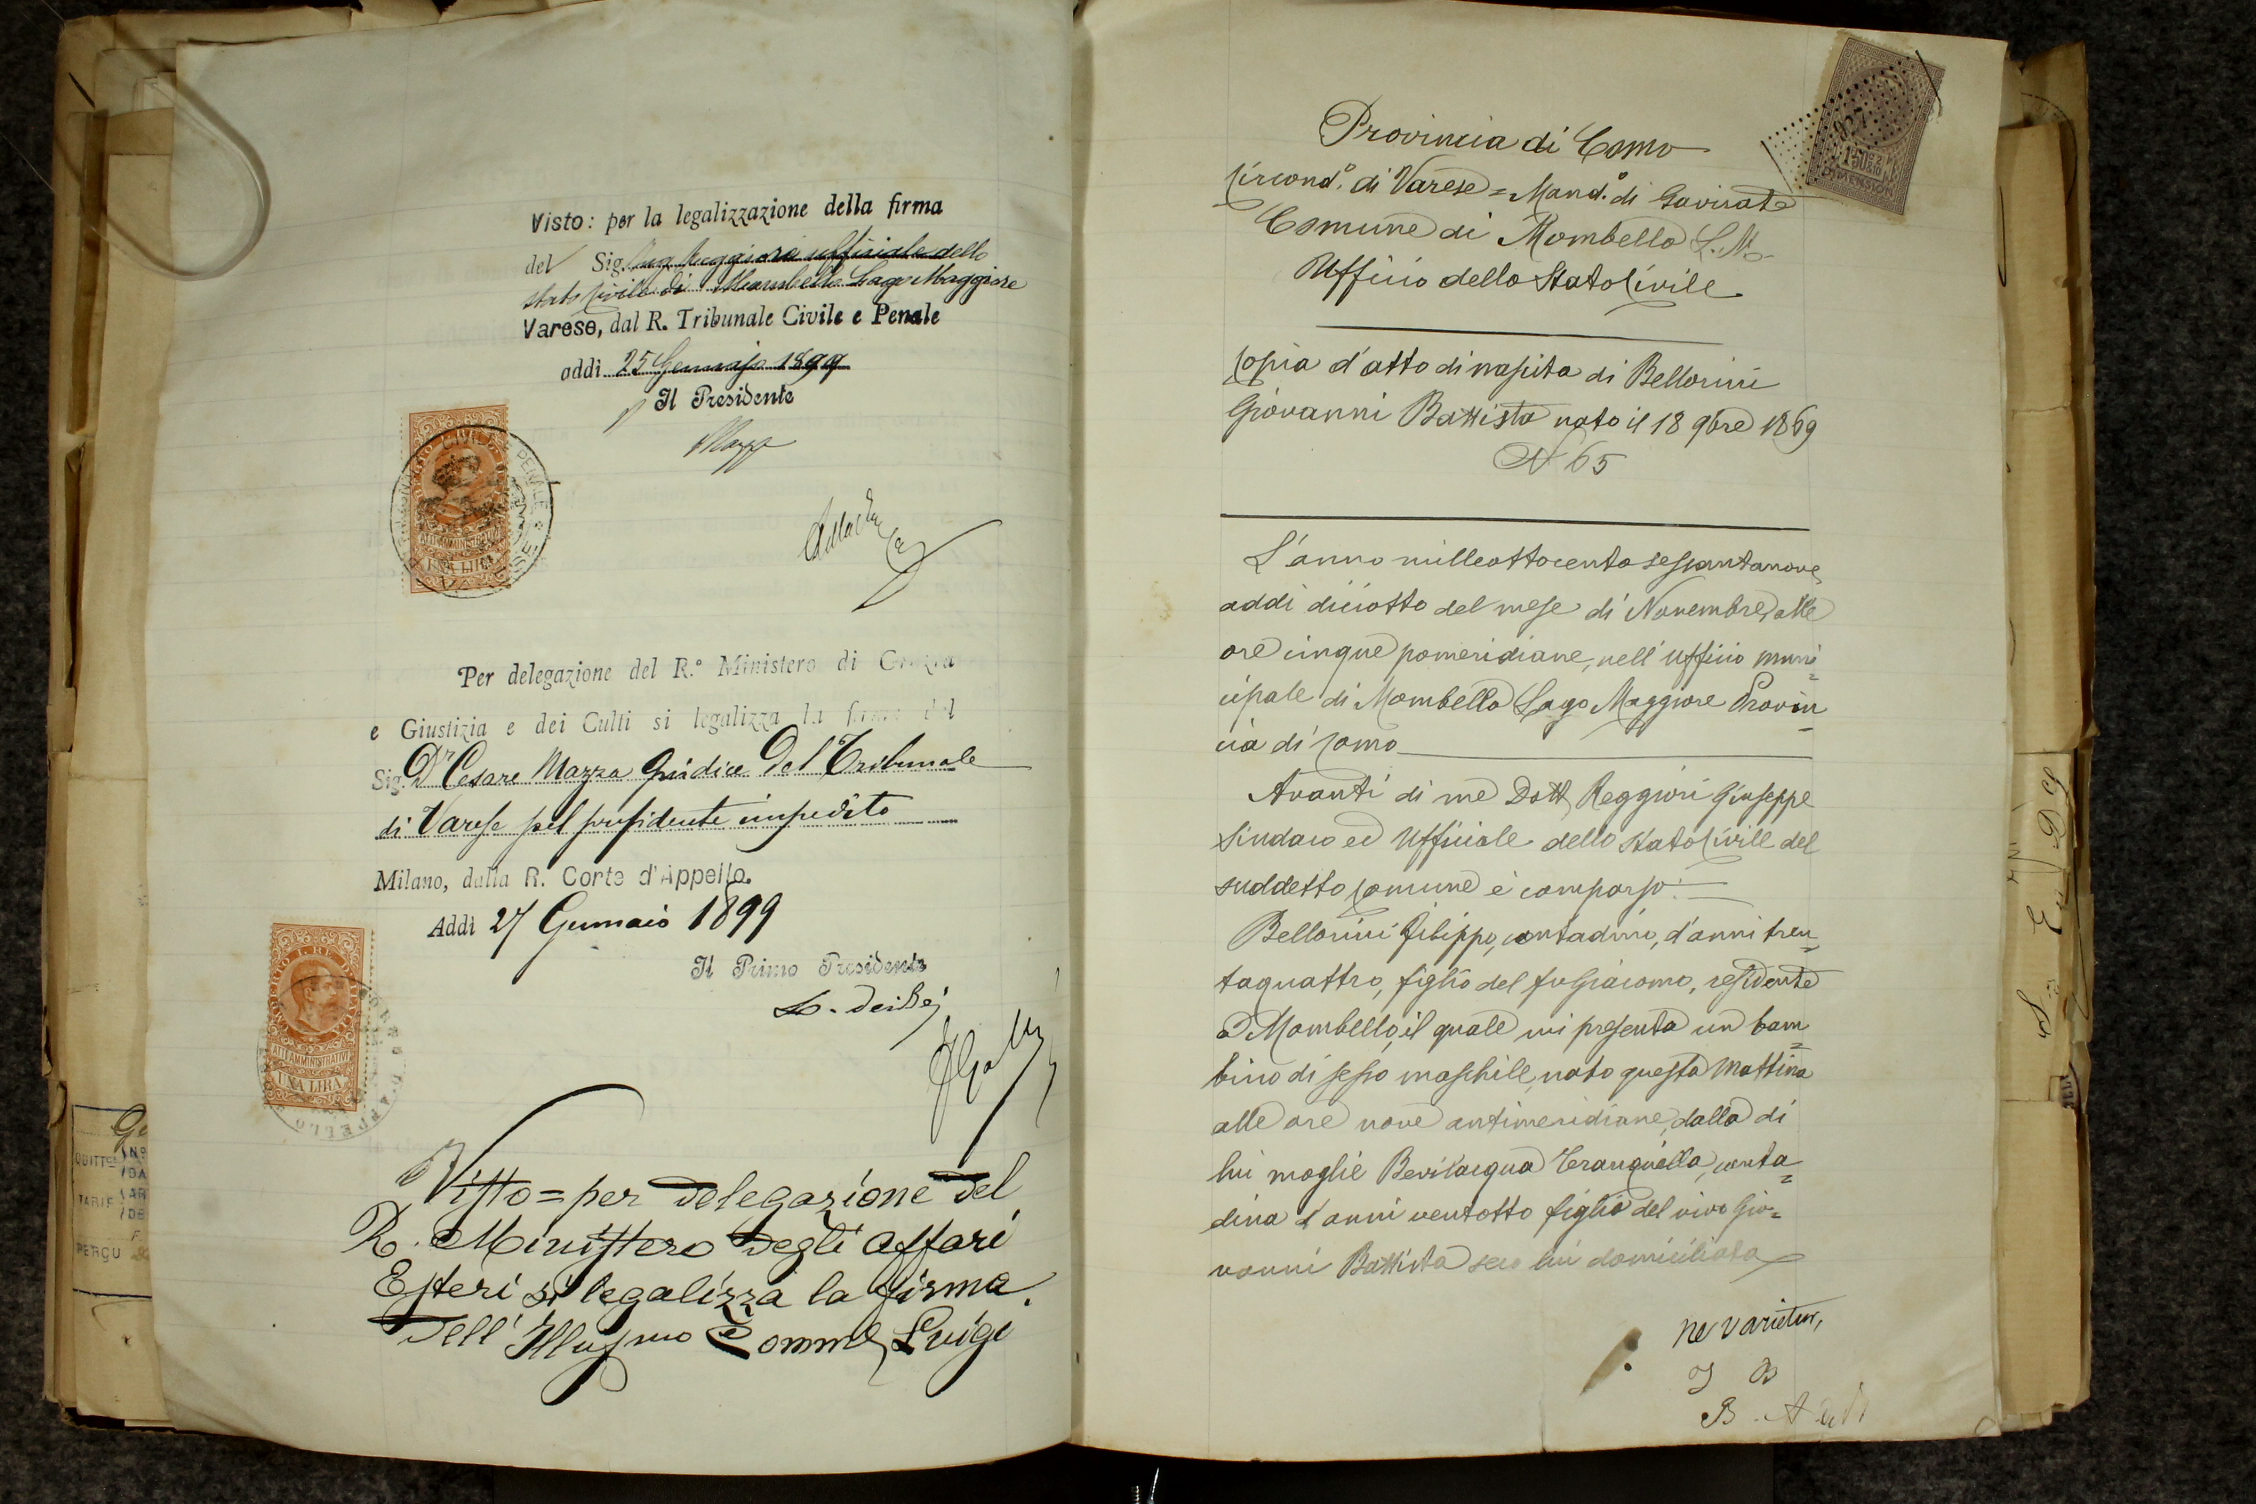 Visto: per la legalizzazione della firma
del Sig. Reggiori ufficiale dello
stato Civile di Mombello Lago Maggiore
Varese, dal R. Tribunale Civile e Penale
addi 25 Gennajo 1899
Il Presidente
Mazza
ATTI AMMINISTRATIVI
UNA LIRA
Per delegazione del R.° Ministero di Grazia
e Giustizia e dei Culti si legalizza la firma del
Sig. Dr Cesare Mazza Giudice del Tribunale
di Varese pel presidente impedito
Milano, dalla R. Corte d'Appello.
Addi 27 Gennaio 1899
Il Primo Presidente
UMBERTO I RE D'ITALIA
ATTI AMMINISTRATIVI
UNA LIRA
Visto = per delegazione del
R. Ministero degli Affari
Esteri si legalizza la firma
dell' Illusmo Comme Luigi
Provincia di Como
Circond.° di Varese = Mand.° di Gavirate
Comune di Mombello L. M.
Ufficio dello Stato Civile
Copia d'atto di nascita di Bellorini
Giovanni Battista nato il 18 9bre 1869
N 65
L'anno milleottocento sessantanove,
addi diciotto del mese di Novembre, alle
ore cinque pomeridiane, nell'ufficio muni=
cipale di Mombello Lago Maggiore Provin=
cia di Como
Avanti di me Dott. Reggiori Giuseppe
Sindaco ed Ufficiale dello Stato Civile del
suddetto Comune è comparso:
Bellorini Filippo, contadino, d'anni tren=
taquattro, figlio del fu Giacomo, residente
a Mombello, il quale mi presenta un bam=
bino di sesso maschile, nato questa mattina
alle ore nove antimeridiane, dalla di
lui moglie Bevilacqua Tranquilla, conta=
dina d'anni ventotto figlia del vivo Gio=
vanni Battista seco lui domiciliata
ne varietur,
J B
QUITTCE
TARIF
PERÇU